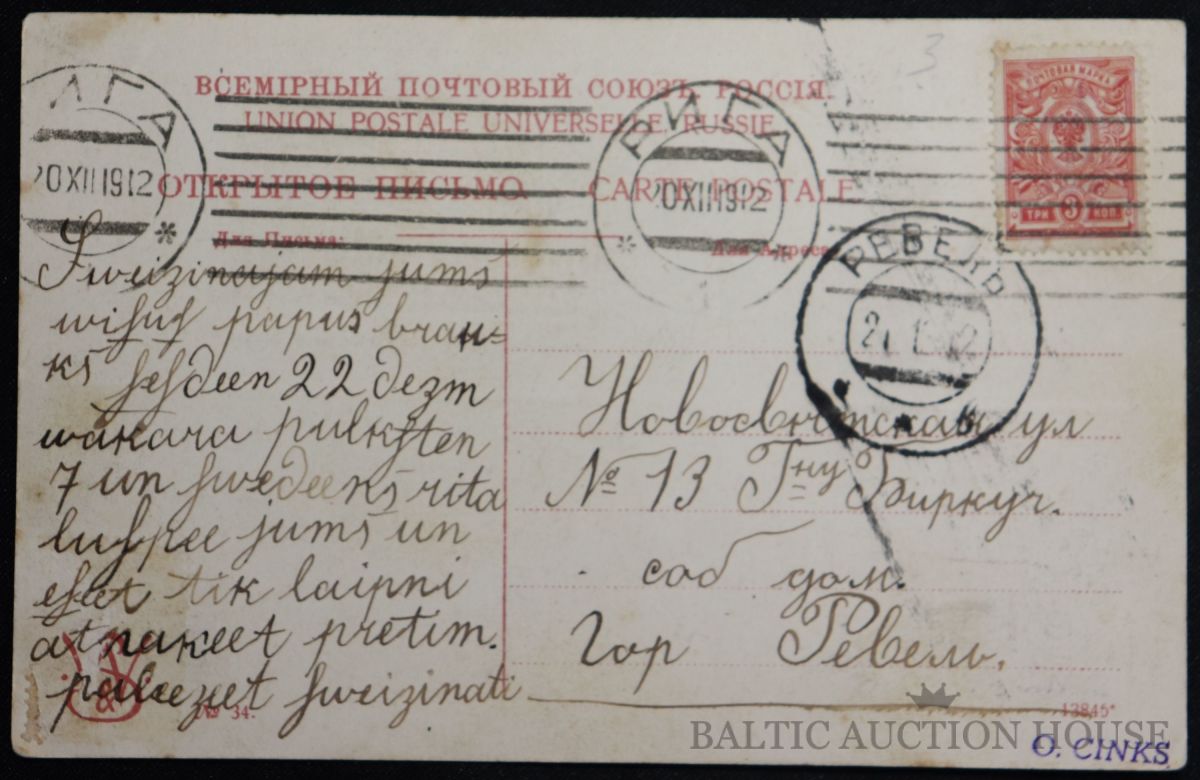 ВСЕМІРНЫЙ ПОЧТОВЫЙ СОЮЗЪ. РОССІЯ.
UNION POSTALE UNIVERSELLE. RUSSIE
ОТКРЫТОЕ ПИСЬМО. CARTE POSTALE
Для Письма:
Для Адреса
РИГА
20XII1912
РИГА
20XII1912
ПОЧТОВАЯ МАРКА
ТРИ 3 КОП.
РЕВЕЛЬ
3
Sweizinajam jums
wiſuſ papus brau-
kſ ſeſdeen 22 dezm
wakara pulkſten
7 un ſwedeenſ rita
luhſpee jums un
eſeet tik laipni
atnakeet pretim.
paleezeet ſweizinati
Новосвѣтская ул
№ 13 Гну Биркуч.
соб дом.
Гор Ревель.
№ 34.
13845*
BALTIC AUCTION HOUSE
O. CINKS